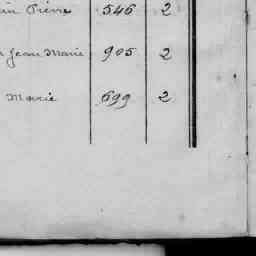 Pierre 546 2
Jean Marie 905 2
Marie 699 2